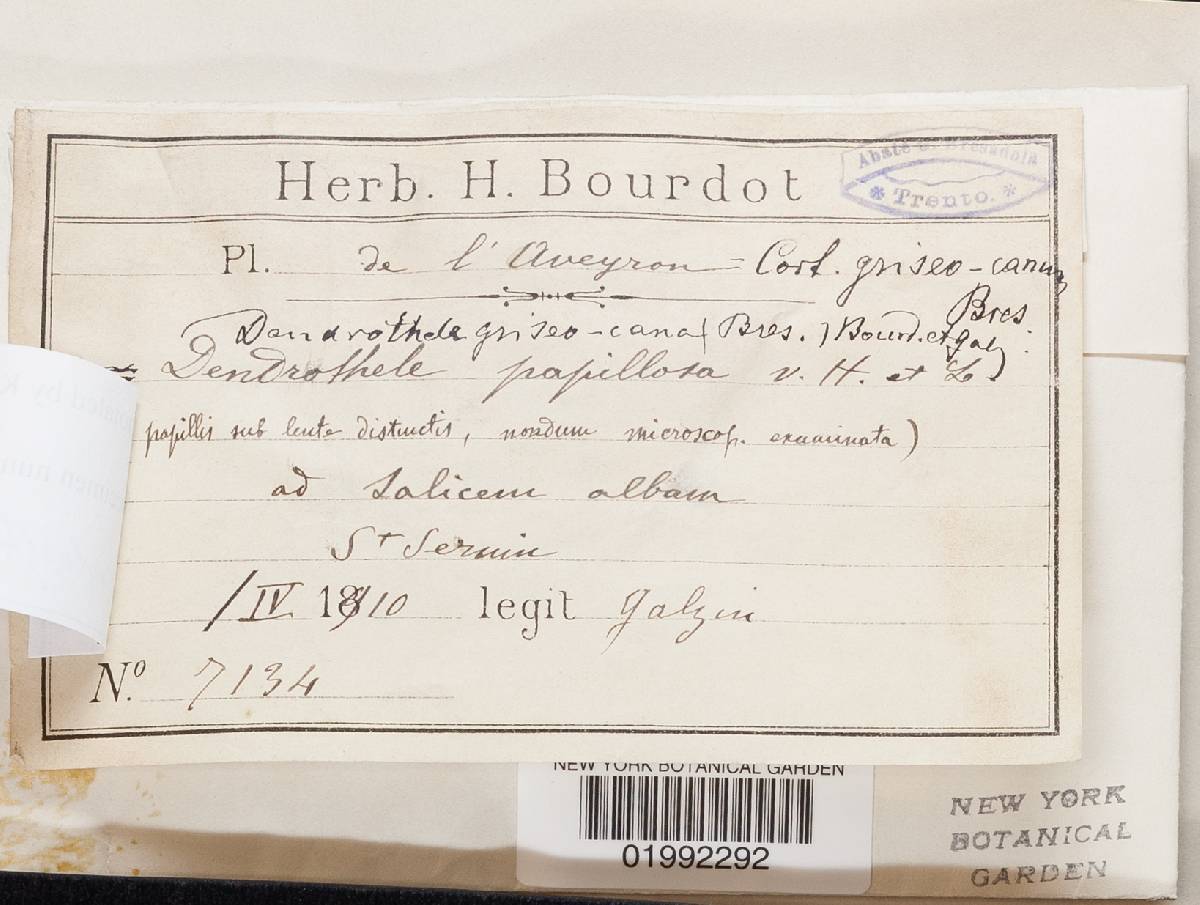 Herb. H. Bourdot
Abate Bresadola
* Trento. *
Pl. de l'Aveyron = Cort. griseo-canum
Bres.
Dendrothele griseo-cana (Bres.) Bourd. et Galz.
= Dendrothele papillosa v. H. et L)
papillis sub lente distinctis, nondum microscop. examinata)
ad Salicem albam
St Sernin
/IV 1910 legit Galzin
N.º 7134
NEW YORK BOTANICAL GARDEN
01992292
NEW YORK
BOTANICAL
GARDEN